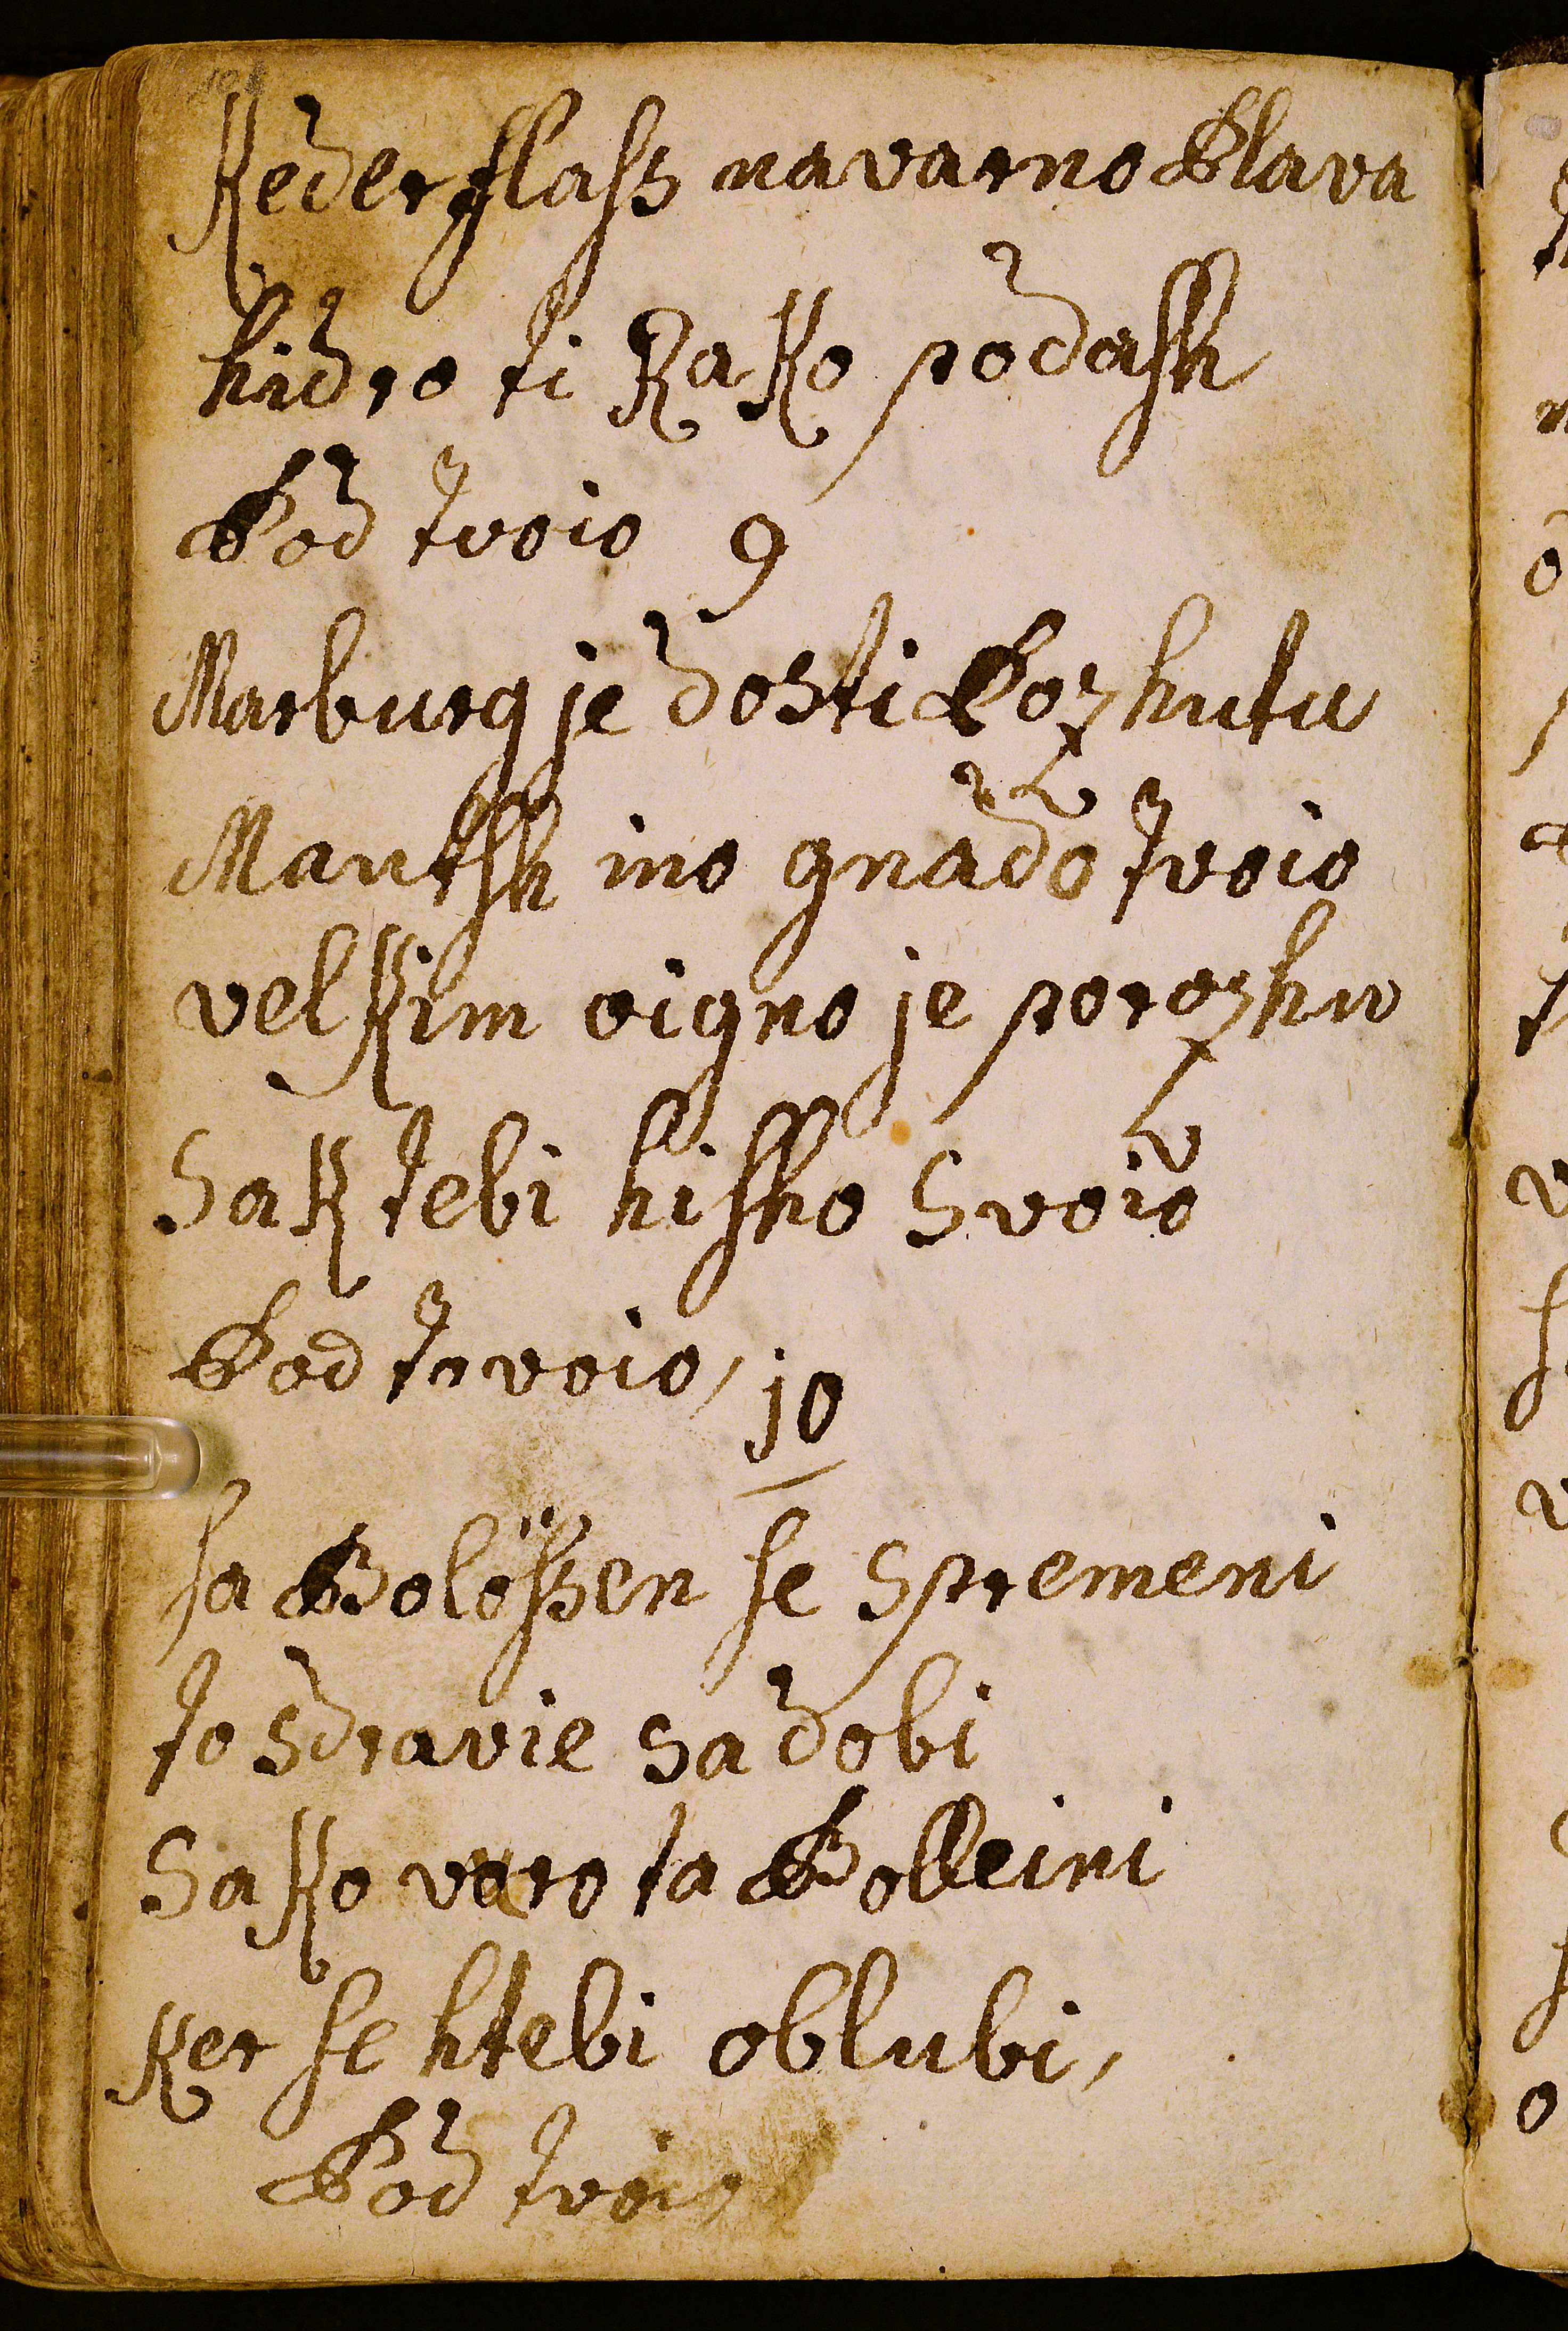 Keder flaſs navarno Blava
hidro ti Ka Ko podaſh
Bod tvoio 9
Marburg je dosti Bozhutu
Mantſh ino gnado tvoio
velKim oigno je porozhu
Sa K tebi hiſho Svoio
Bod tvoio, 10
ſa Bolëſsen ſe Spremeni
to Sdravie Sadobi
SaKo varo ta Bolleini
Ker ſe htebi oblubi,
Bod tvoio